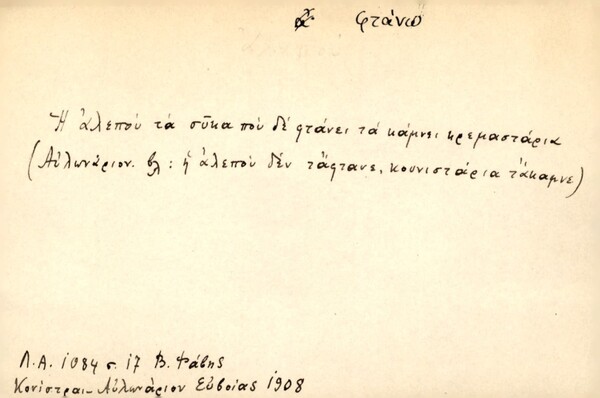 φτάνω
Ἡ ἀλεποὺ τὰ σῦκα ποὺ δὲ φτάνει τὰ κάμνει κρεμαστάρια
(Αὐλωνάριον. βλ : ἡ ἀλεποὺ δὲν τἄφτανε, κουνιστάρια τἄκαμνε)
Λ.Α. 1084 σ. 17 Β. Φάβης
Κονίστραι - Αὐλωνάριον Εὐβοίας 1908